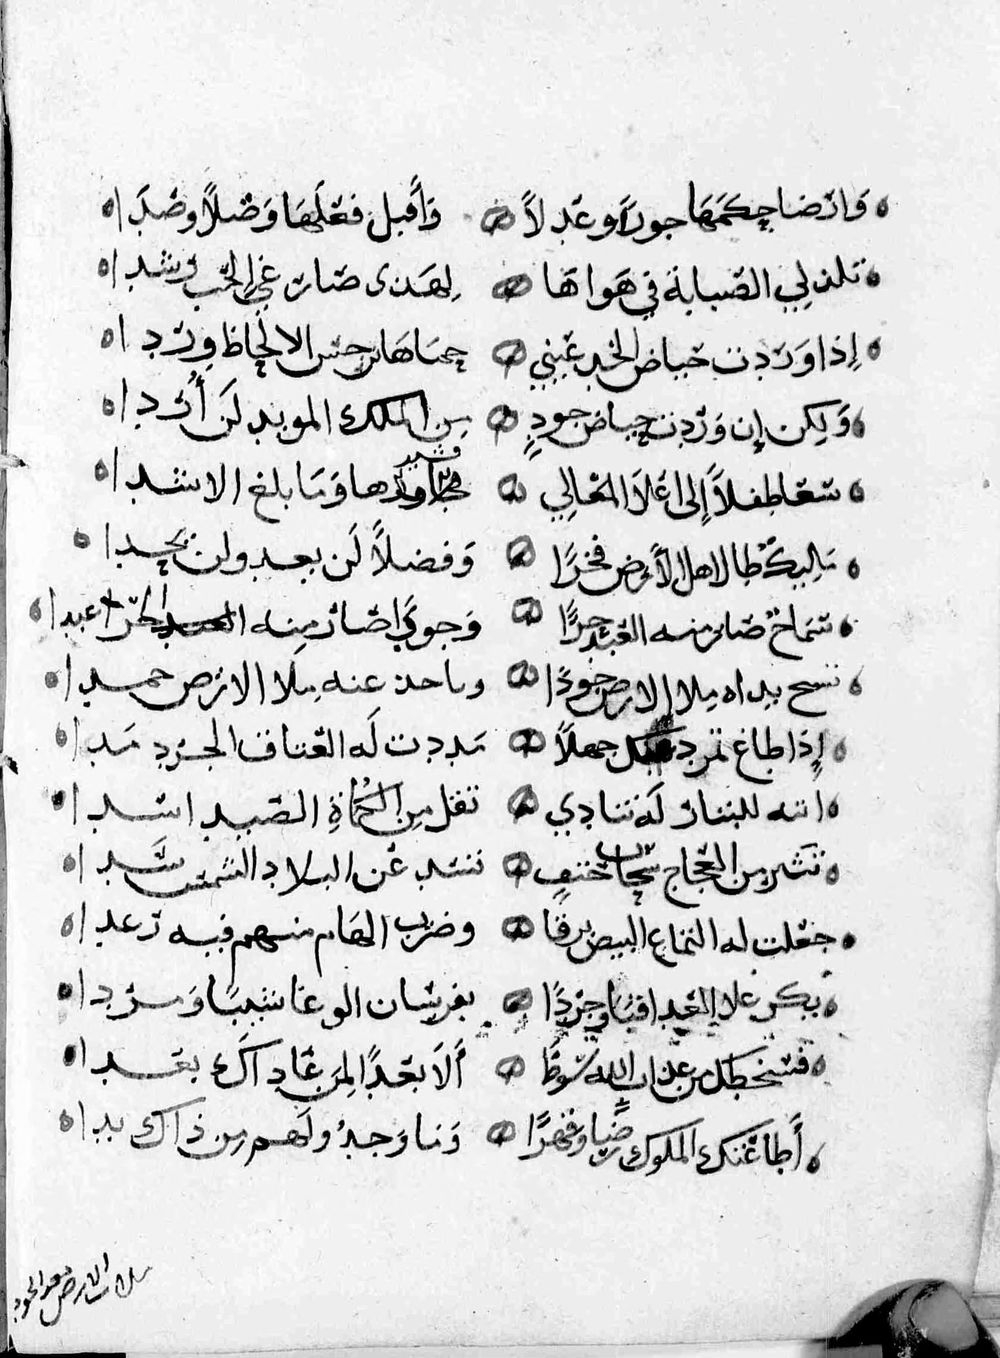 وارضا حكمها جورا وعدلاً وأقبل فعلها وصلاً وصدا
تلذ لي الصبابة في هواها لهذى صار غي الحب رشدا
إذا وردت حياض الخد عيني حماها نرجس الالحاظ وردا
ولكن إن وردت حياض جودٍ من الملك المويد لن أُردا
سعا طفلاً إلى أعلا المعالي وما بلغ الاشدا
مليكٌ طال اهل الأرض فخرًا وفضلاً لن يعد ولن يحدا
سماحٌ صار منه العبد حرًا وجودٌ صار منه الحر عبدا
تسح يداه ملا الارض جودًا وياخذ عنه ملا الارض حمدا
إذا طاغ تمرد جهلاً مددت له العتاق الجرد مدا
اسد للبشار له تنادي تفل من الحماة الصيد اسدا
تثير من العجاج سحاب حتفٍ تسد عن البلاد الشمس سدا
جعلت له التماع البيض برقا وضرب الهام منهم فيه رعدا
بكر علا العدا قبا وجردًا بفرسان الوغا شيبًا ومردا
فتسخطهم عذاب الله سوطا ألا بعدًا لمن عاداك بعدا
أطاعتك الملوك رضًا وقهرًا وما وجدوا لهم من ذاك بدا
ملات الارض بعد الجود